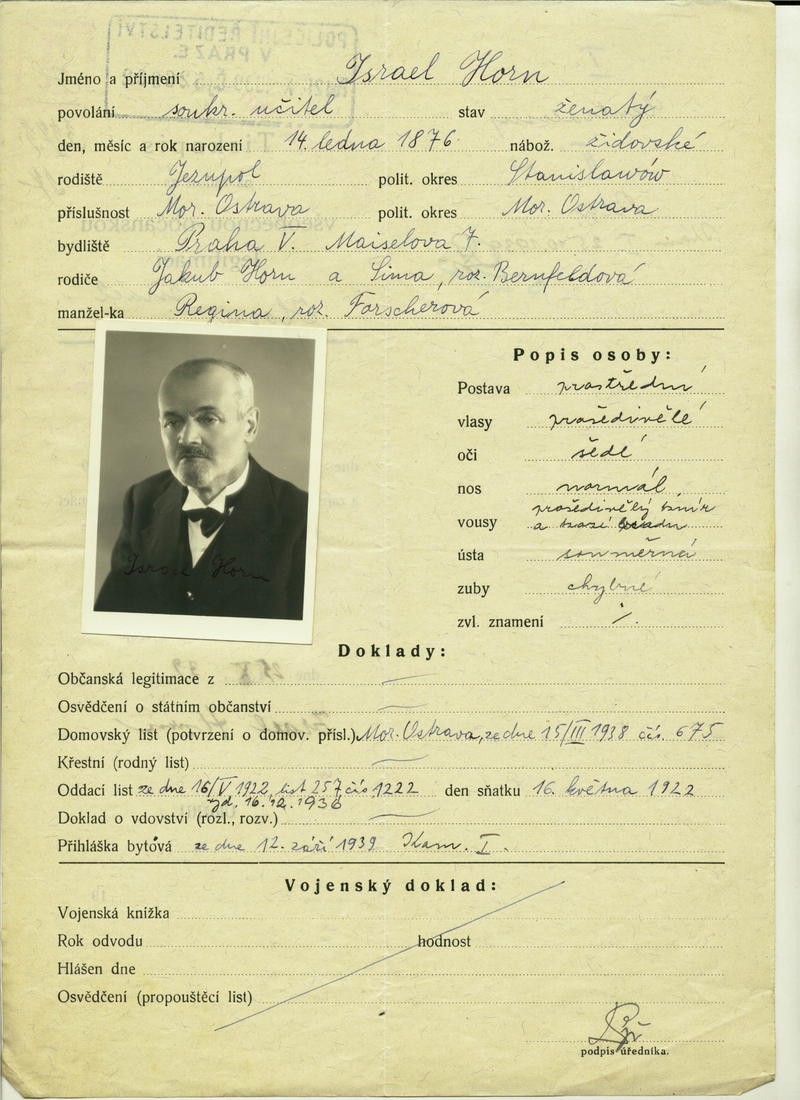 POLICEJNÍ ŘEDITELSTVÍ
V PRAZE
Jméno a příjmení Israel Horn
povolání soukr. učitel stav ženatý
den, měsíc a rok narození 14. ledna 1876 nábož. židovské
rodiště Jezupol polit. okres Stanislawów
příslušnost Mor. Ostrava polit. okres Mor. Ostrava
bydliště Praha V. Maiselova 7.
rodiče Jakub Horn a Sima, roz. Bernfeldová
manžel-ka Regina, roz. Forscherová
Popis osoby:
Postava prostřední
vlasy prošedivělé
oči šedé
nos normál.
prošedivělý knír
vousy a bradu
ústa souměrná
zuby chybné
zvl. znamení /.
Israel Horn
Doklady:
Občanská legitimace z —
Osvědčení o státním občanství —
Domovský list (potvrzení o domov. přísl.) Mor. Ostrava, ze dne 15/III 1938 čís. 675
Křestní (rodný list) —
Oddací list ze dne 16/V 1922, list 257 čís 1222 den sňatku 16. května 1922
vyd. 16.12.1936
Doklad o vdovství (rozl., rozv.) —
Přihláška bytová ze dne 12. září 1939 Kom. I.
Vojenský doklad:
Vojenská knížka
Rok odvodu hodnost
Hlášen dne
Osvědčení (propouštěcí list)
podpis úředníka.